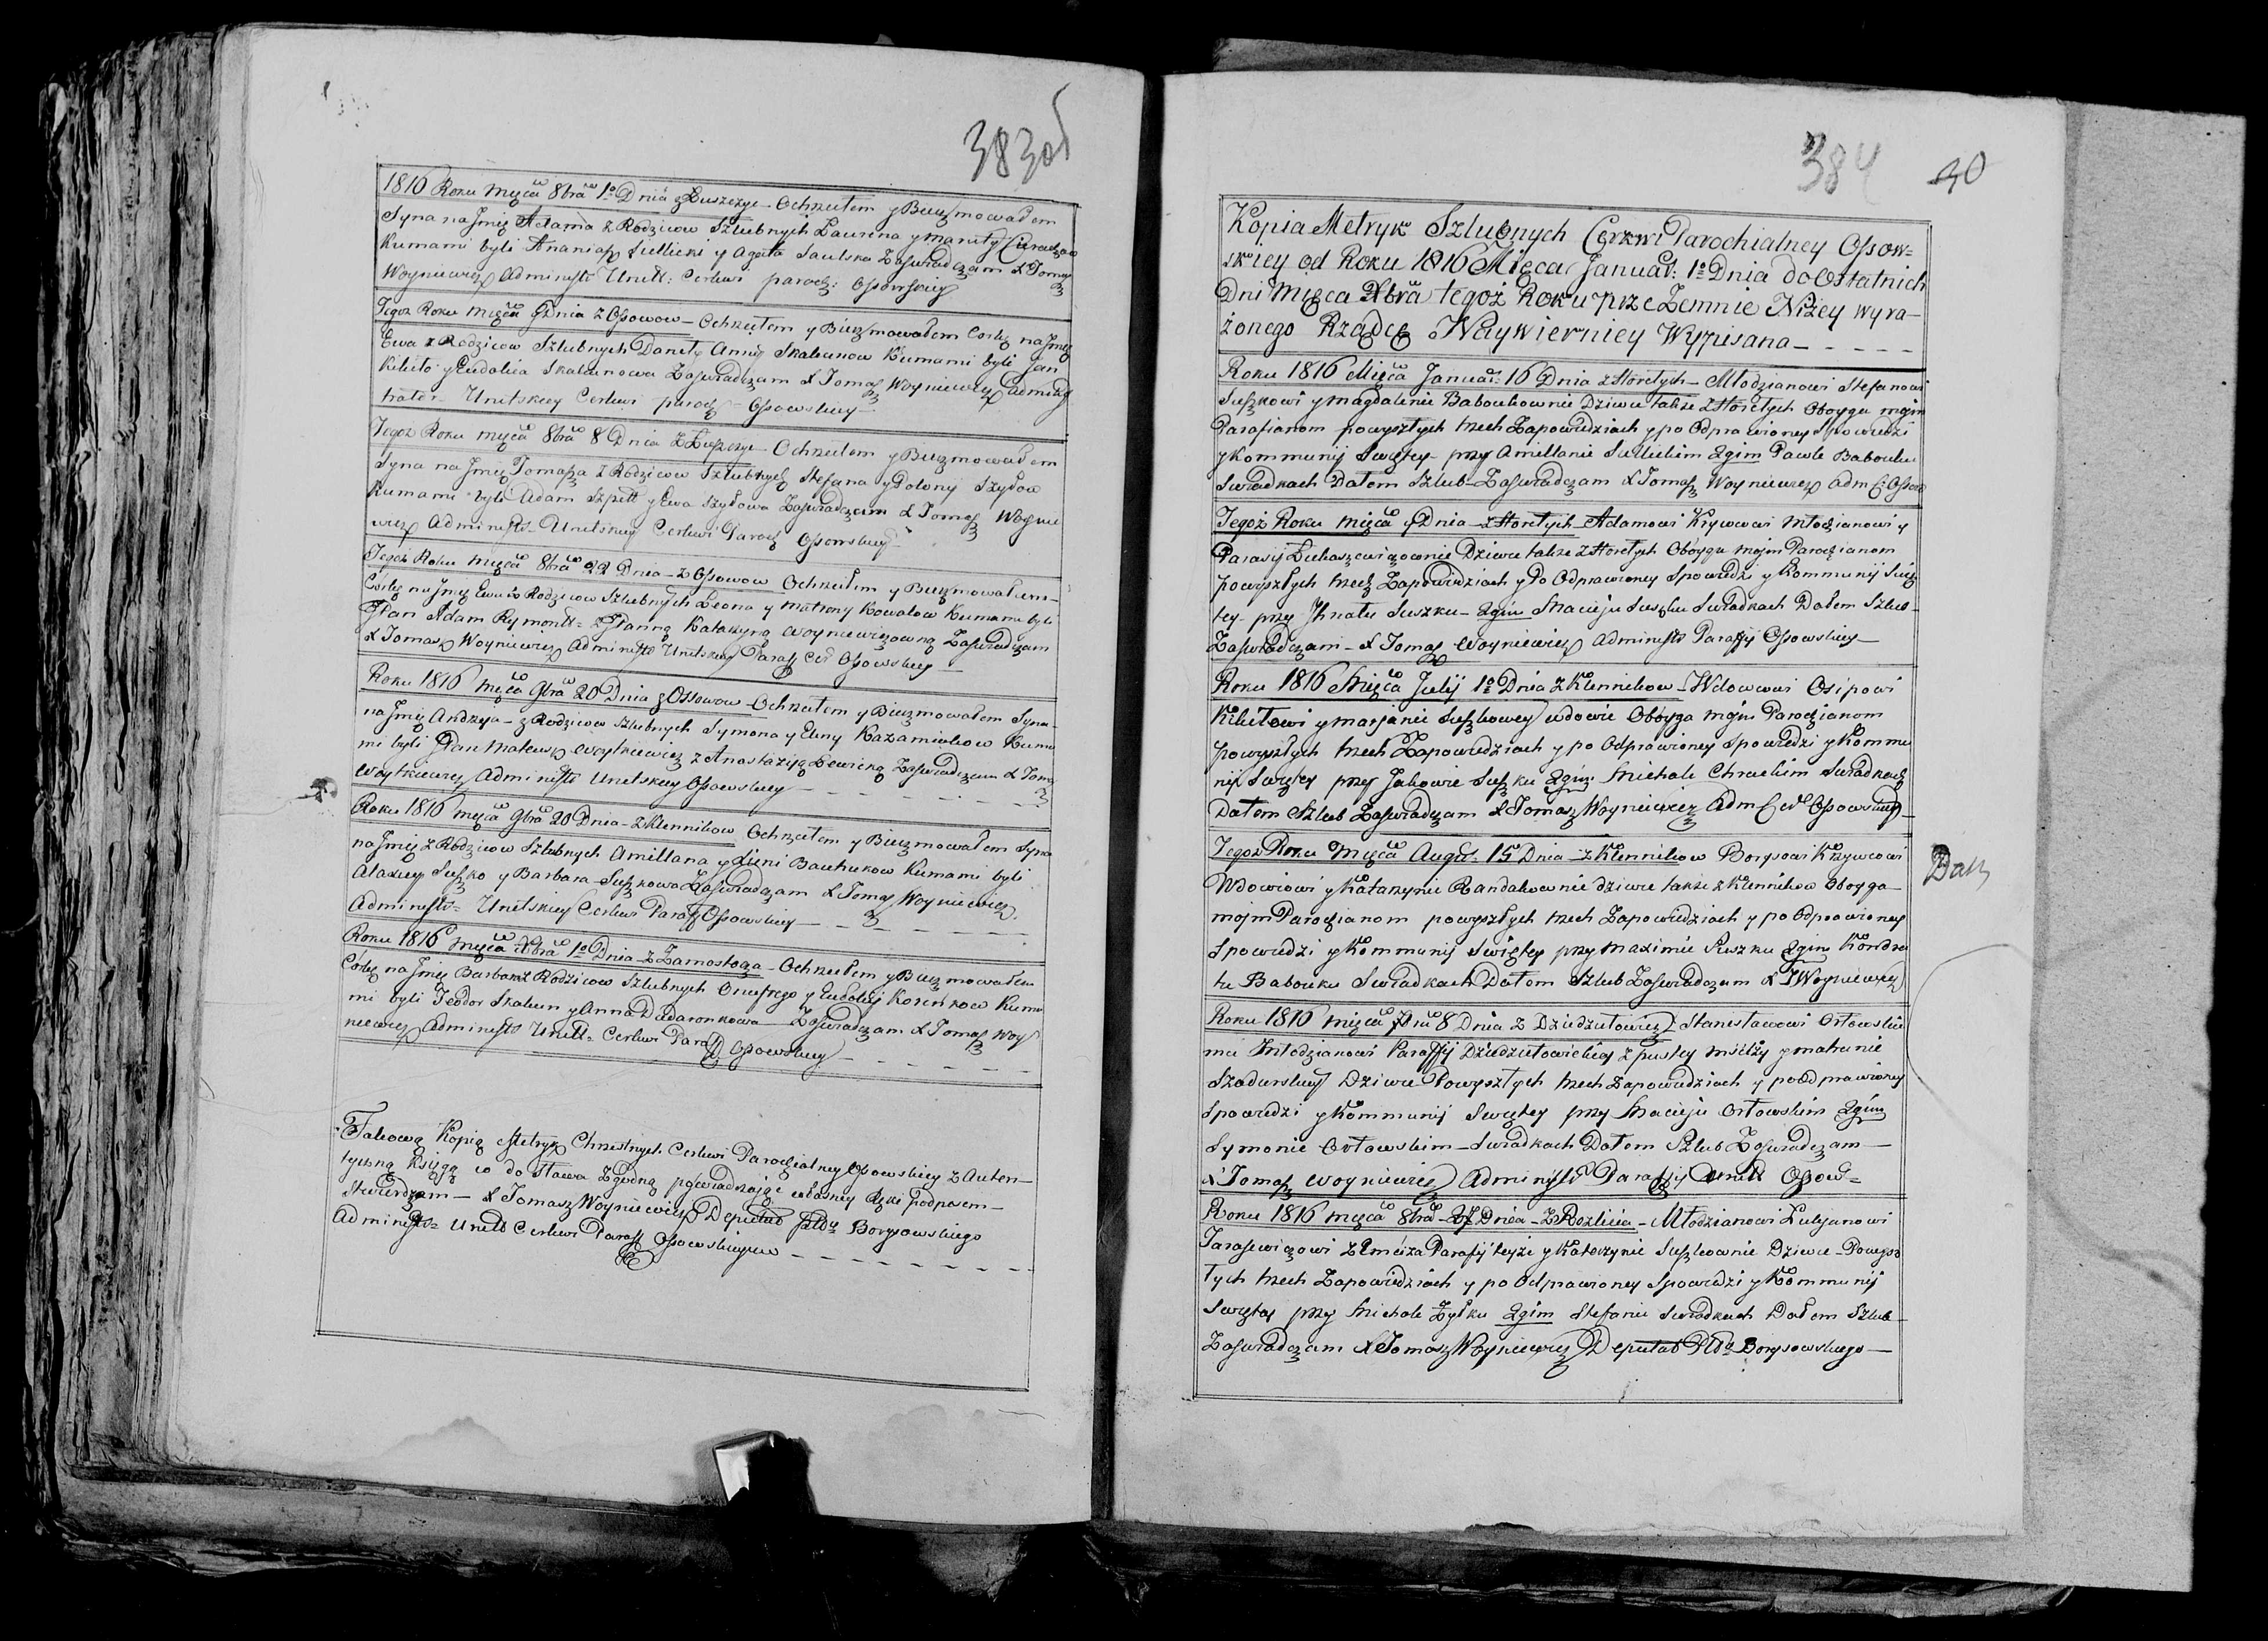 383об
1816 Roku Mięcа 8bra 1º Dnia z Łuszczyc Ochrzciłem y Bierzmowałem
Syna na Jmię Adama z Rodziców Szlubnych Laurena y Maruty
Kumami byli Ananiasz Sutlicki y Agata Saulska Zaświadczam X Tomasz
Woyniewicz Administr Unitt: Cerkwi paroch: Ossowskiey
Tegoż Roku Mięca 9 Dnia z Ossowow Ochrzciłem y Bierzmowałem Corkę na Jmię
Ewa z Rodziców Szlubnych Daneły Anny Skabunow Kumami byli Jan
Kibito y Eudokia Skabunowa Zaświadczam X Tomasz Woyniewicz Adminis
trator Unitskiey Cerkwi paroch Ossowskiey
Tegoż Roku Mięca 8bra 8 Dnia z Łuszczyc Ochrzciłem y Bierzmowałem
Syna na Jmię Tomasza z Rodziców Szlubnych Stefana y Połonij Szyłow
Kumami byli Adam Szpett y Ewa Szyłowa Zaświadczam X Tomasz Woynie
wicz Administr Unitskiey Cerkwi Paroch Ossowskiey
Tegoż Roku Mięca 8bra 22 Dnia z Ossowow Ochrzciłem y Bierzmowałem
Corkę na Jmię Ewa z Rodziców Szlubnych Leona y Matrony Kowalow Kumami byli
JPan Adam Rymontt z JPanną Katarzyną Woyniewiczowną Zaświadczam
X Tomasz Woyniewicz Administr Unitskiey Paraff Cer Ossowskiey
Roku 1816 Mięca 9bra 20 Dnia z Ossowow Ochrzciłem y Bierzmowałem Syna
na Jmię Andrzeja z Rodziców Szlubnych Symona y Eleny Kazamiakow Kuma
mi byli JPan Mateusz Woytkiewicz z Anastazyą Lewicką Zaświadczam X Tomasz
Woytkiewicz Administr Unitskiey Ossowskiey
Roku 1816 Mięca 9bra 20 Dnia z Klennikow Ochrzciłem y Bierzmowałem Syna
na Jmię z Rodziców Szlubnych Amillana y Xieni Bautrukow Kumami byli
Alaxiey Suszko y Barbara Suszkowa Zaświadczam X Tomasz Woyniewicz
Administr Unitskiey Cerkwi Paraff Ossowskiey
Roku 1816 Mięca Xbra 1º Dnia z Zamostocza Ochrzciłem y Bierzmowałem
Corkę na Jmię Barbara z Rodziców Szlubnych Onufrego y Eudokij Korenkow Kuma
mi byli Teodor Skabun y Anna Dudaronkowa Zaświadczam X Tomasz Woy
niewicz Administr Unitt Cerkwi Paraff Ossowskiey
Takową Kopią Metryk Chrzestnych Cerkwi Parochialney Ossowskiey z Auten
tyczną Księgą co do Słowa Zgodną poświadczając własney Ręki podpisem
Stwierdzam X Tomasz Woyniewicz Deputat Borysowskiego
Administr Unitt Cerkwi Paraff Ossowskiey
384 30
Kopia Metryk Szlubnych Cerkwi Parochialney Ossow=
skiey od Roku 1816 Mięca Januar: 1º Dnia do Ostatnich
Dni Mięca Xbra tegoż Roku przezemnie Niżey wyra
żonego Rządcę Naywierniey Wypisana
Roku 1816 Mięca Januar: 16 Dnia z Horełych Młodzianowi Stefanowi
Suszkowi y Magdalenie Baboukownie Dziewce także z Horełych Oboyga moim
Parafianom powyszłych trzech Zapowiedziach y po Odprawioney Spowiedzi
y Kommunij Swiętey przy Amillanie Sutlickim Zgim Pawle Babouku
Swiadkach Dałem Szlub Zaświadczam X Tomasz Woyniewicz Adm C: Ossow
Tegoż Roku Mięca y Dnia z Horełych Adamowi Krywcowi Młodzianowi y
Parasij Łukaszewiczownie Dziewce także z Horełych Oboyga moim Parochianom
powyszłych trzech Zapowiedziach y Po Odprawioney Spowiedzi y Kommunij Swię
tey przy Jhnatu Suszku Zgim Macieju Suszku Swiadkach Dałem Szlub
Zaświadczam X Tomasz Woyniewicz Administr Paraffij Ossowskiey
Roku 1816 Mięca Julij 1º Dnia z Klennikow Wdowcowi Osipowi
Kibitowi y Marjanie Suszkowey wdowie Oboyga moim Parochianom
powyszłych trzech Zapowiedziach y po Odprawioney Spowiedzi y Kommu
nij Swiętey przy Jakowie Suszku Zgim Michale Chrackim Swiadkach
Dałem Szlub Zaświadczam X Tomasz Woyniewicz Adm Cer Ossowskiey
Tegoż Roku Mięca Augus: 15 Dnia z Klennikow Borysowi Krzywcowi
Wdowcowi y Katarzynie Randakownie dziewce także z Klennikow Oboyga
moim Parochianom powyszłych trzech Zapowiedziach y po Odprawioney
Spowiedzi y Kommunij Swiętey przy Maximie Suszku Zgim Kondra
tu Babouku Swiadkach Dałem Szlub Zaświadczam X T Woyniewicz
Roku 1816 Mięca 7bra 8 Dnia z Dziedziłowicz Stanisławowi Orłowskie
mu Młodzianowi Paraffij Dziedziłowickiey z pustey Mściży y Matrunie
Szadurskiey Dziewce Powyszłych trzech Zapowiedziach y po Odprawioney
Spowiedzi y Kommunij Swiętey przy Macieju Orłowskim Zgim
Symonie Orłowskim Swiadkach Dałem Szlub Zaświadczam
X Tomasz Woyniewicz Administr Paraffij Unitt Ossow=
Roku 1816 Mięca 8bra 27 Dnia z Rozlicia Młodzianowi Łukjanowi
Tarasewiczowi z Paraffij teyże y Katarzynie Suszkownie Dziewce Powysz
łych trzech Zapowiedziach y po Odprawioney Spowiedzi y Kommunij
Swiętey przy Michale Żyłku Zgim Stefanie Swiadkach Dałem Szlub
Zaświadczam X Tomasz Woyniewicz Deputat Borysowskiego